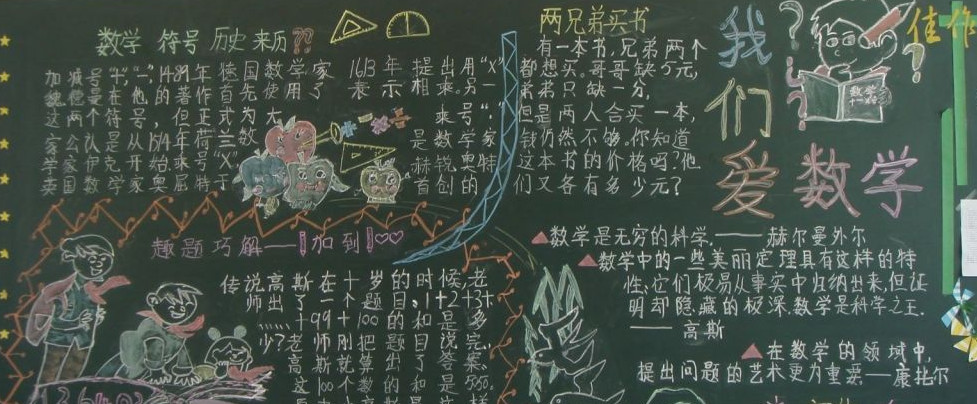 数学 符号 历史 来历??
加减号"+","-",1489年德国数学家
魏德曼在他的著作首先使用了
这两个符号,但正式为大
家公认是从1514年荷兰
数学家
英国数学家奥屈特于
1613年提出用"x"
表示相乘。另一
乘号"·"
是数学家
赫锐奥特
首创的
两兄弟买书
有一本书,兄弟两个
都想买。哥哥缺5元,
弟弟只缺一分,
但是两人合买一本,
钱仍然不够。你知道
这本书的价格吗?他
们又各有多少元?
我
们
爱数学
佳作
数学
趣题巧解——1加到100
传说高斯在十岁的时候,老
师出了一个题目:1+2+3+
……+99+100的和是多
少?老师刚把题目说完,
高斯就算出了答案:
这100个数的和是5050。
数学是无穷的科学.——赫尔曼外尔
数学中的一些美丽定理具有这样的特
性:它们极易从事实中归纳出来,但证
明却隐藏的极深.数学是科学之王.
——高斯
在数学的领域中,
提出问题的艺术更为重要——康托尔